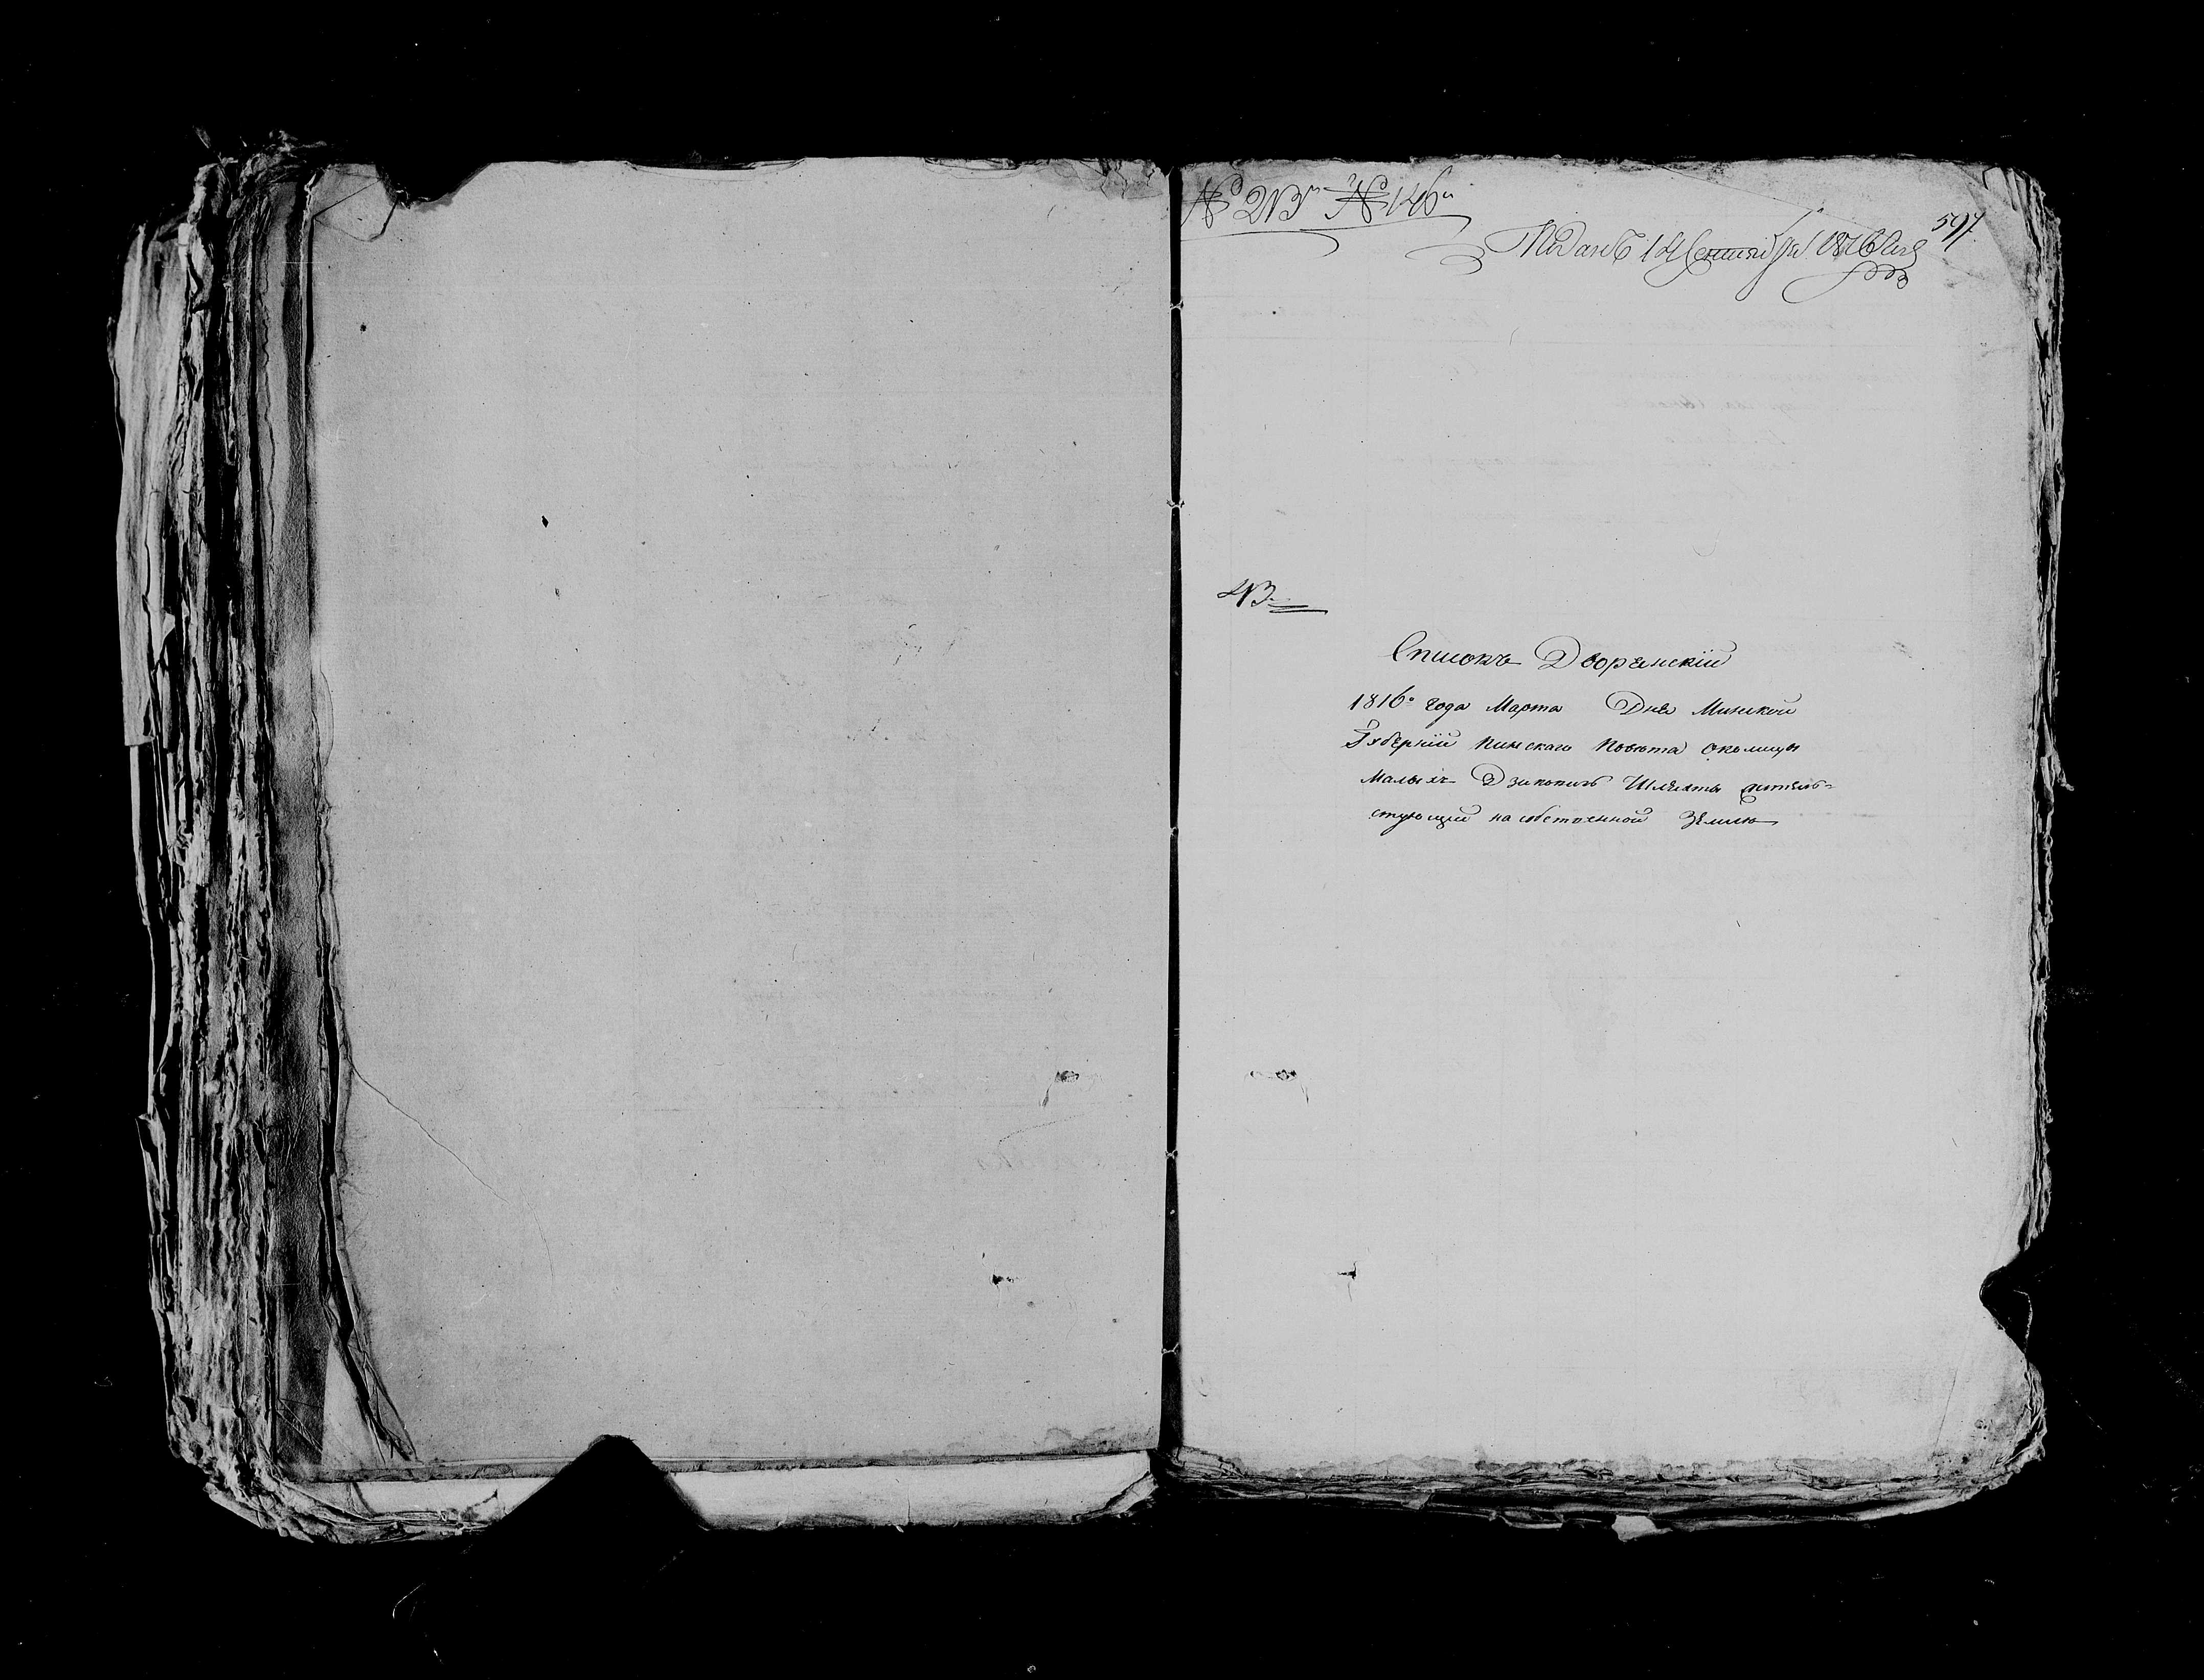 № 213 № 146
597
Поданъ 14 Сентября 1816 года
43
Списокъ Дворянскій
1816º года Марта Дня Минской
Губерніи Пинскаго Повѣта Околицы
Малыхъ Дзиковичъ Шляхты жител-
ствующій на собственной Землѣ